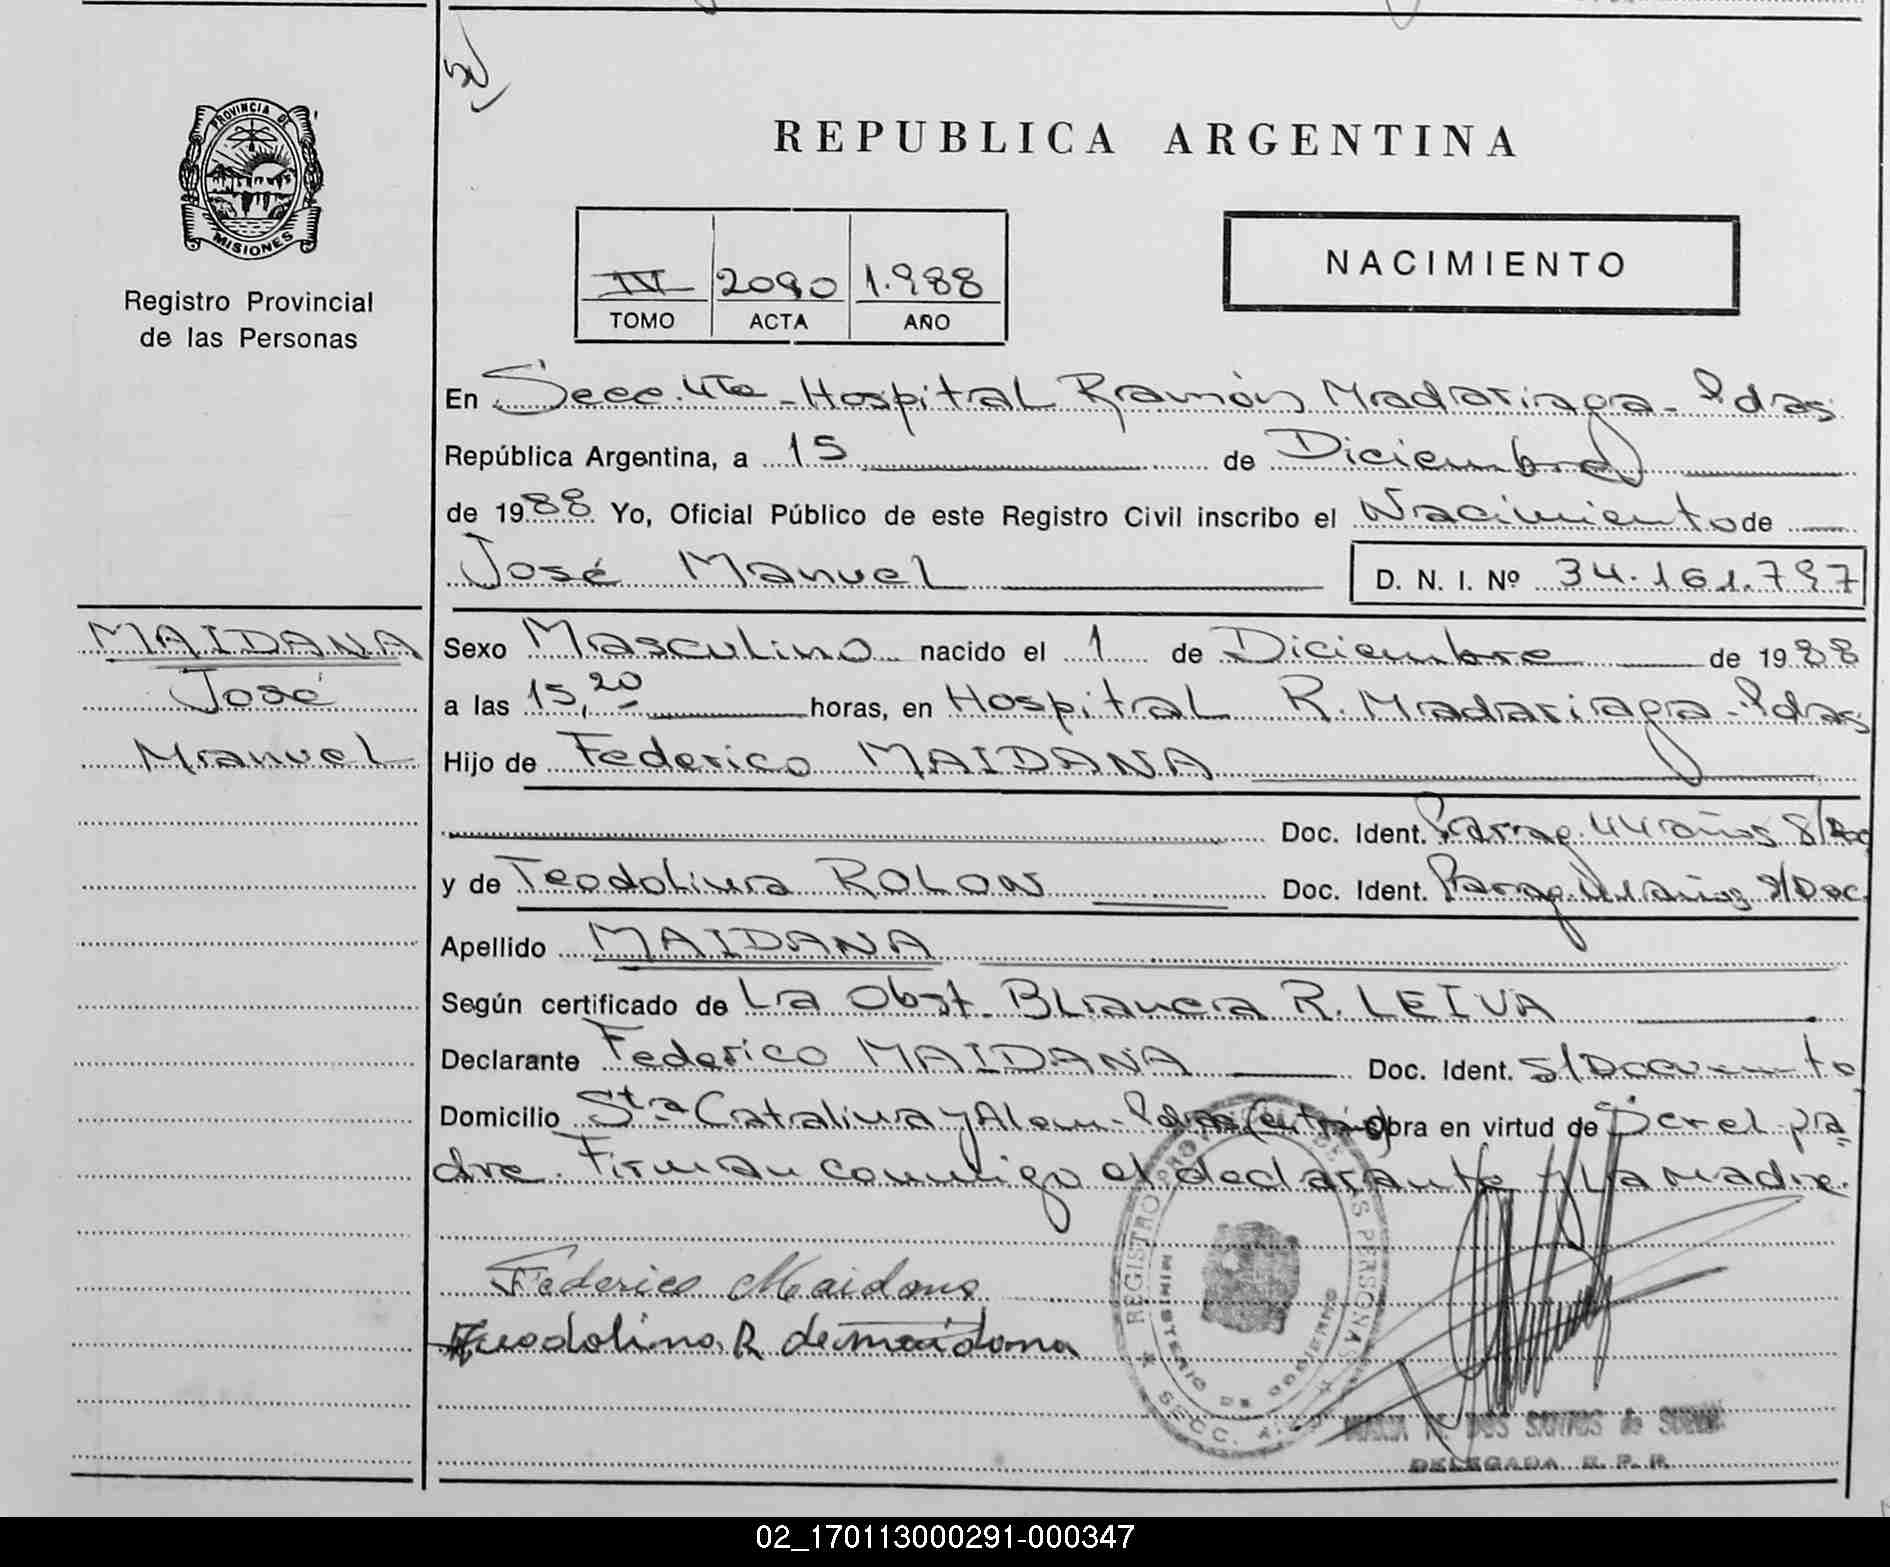 PROVINCIA DE
MISIONES
Registro Provincial
de las Personas
REPUBLICA ARGENTINA
IV 2090 1.988
TOMO ACTA AÑO
NACIMIENTO
En Secc. 4ta - Hospital Ramón Madariaga - Pdas
República Argentina, a 15 de Diciembre
de 1988 Yo, Oficial Público de este Registro Civil inscribo el Nacimiento de
José Manuel D. N. I. Nº 34.161.797
MAIDANA
José
Manuel
Sexo Masculino nacido el 1 de Diciembre de 1988
a las 15,20 horas, en Hospital R. Madariaga - Pdas
Hijo de Federico MAIDANA
Doc. Ident. Parag. 44 años S/Doc
y de Teodolina ROLON Doc. Ident. Parag. años S/Doc.
Apellido MAIDANA
Según certificado de La Obst. Blanca R. LEIVA
Declarante Federico MAIDANA Doc. Ident. S/Documento
Domicilio Sta Catalina y Alem - Pdas Obra en virtud de Ser el pa
dre. Firman conmigo el declarante y La madre.
Federico Maidana
Teodolina R de maidana
REGISTRO PROV DE LAS PERSONAS
MINISTERIO DE GOBIERNO
SECC. 4
DOS SANTOS de
DELEGADA R. P. P.
02_170113000291-000347